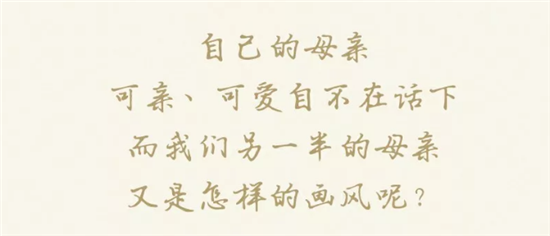 自己的母亲
可亲、可爱自不在话下
而我们另一半的母亲
又是怎样的画风呢？